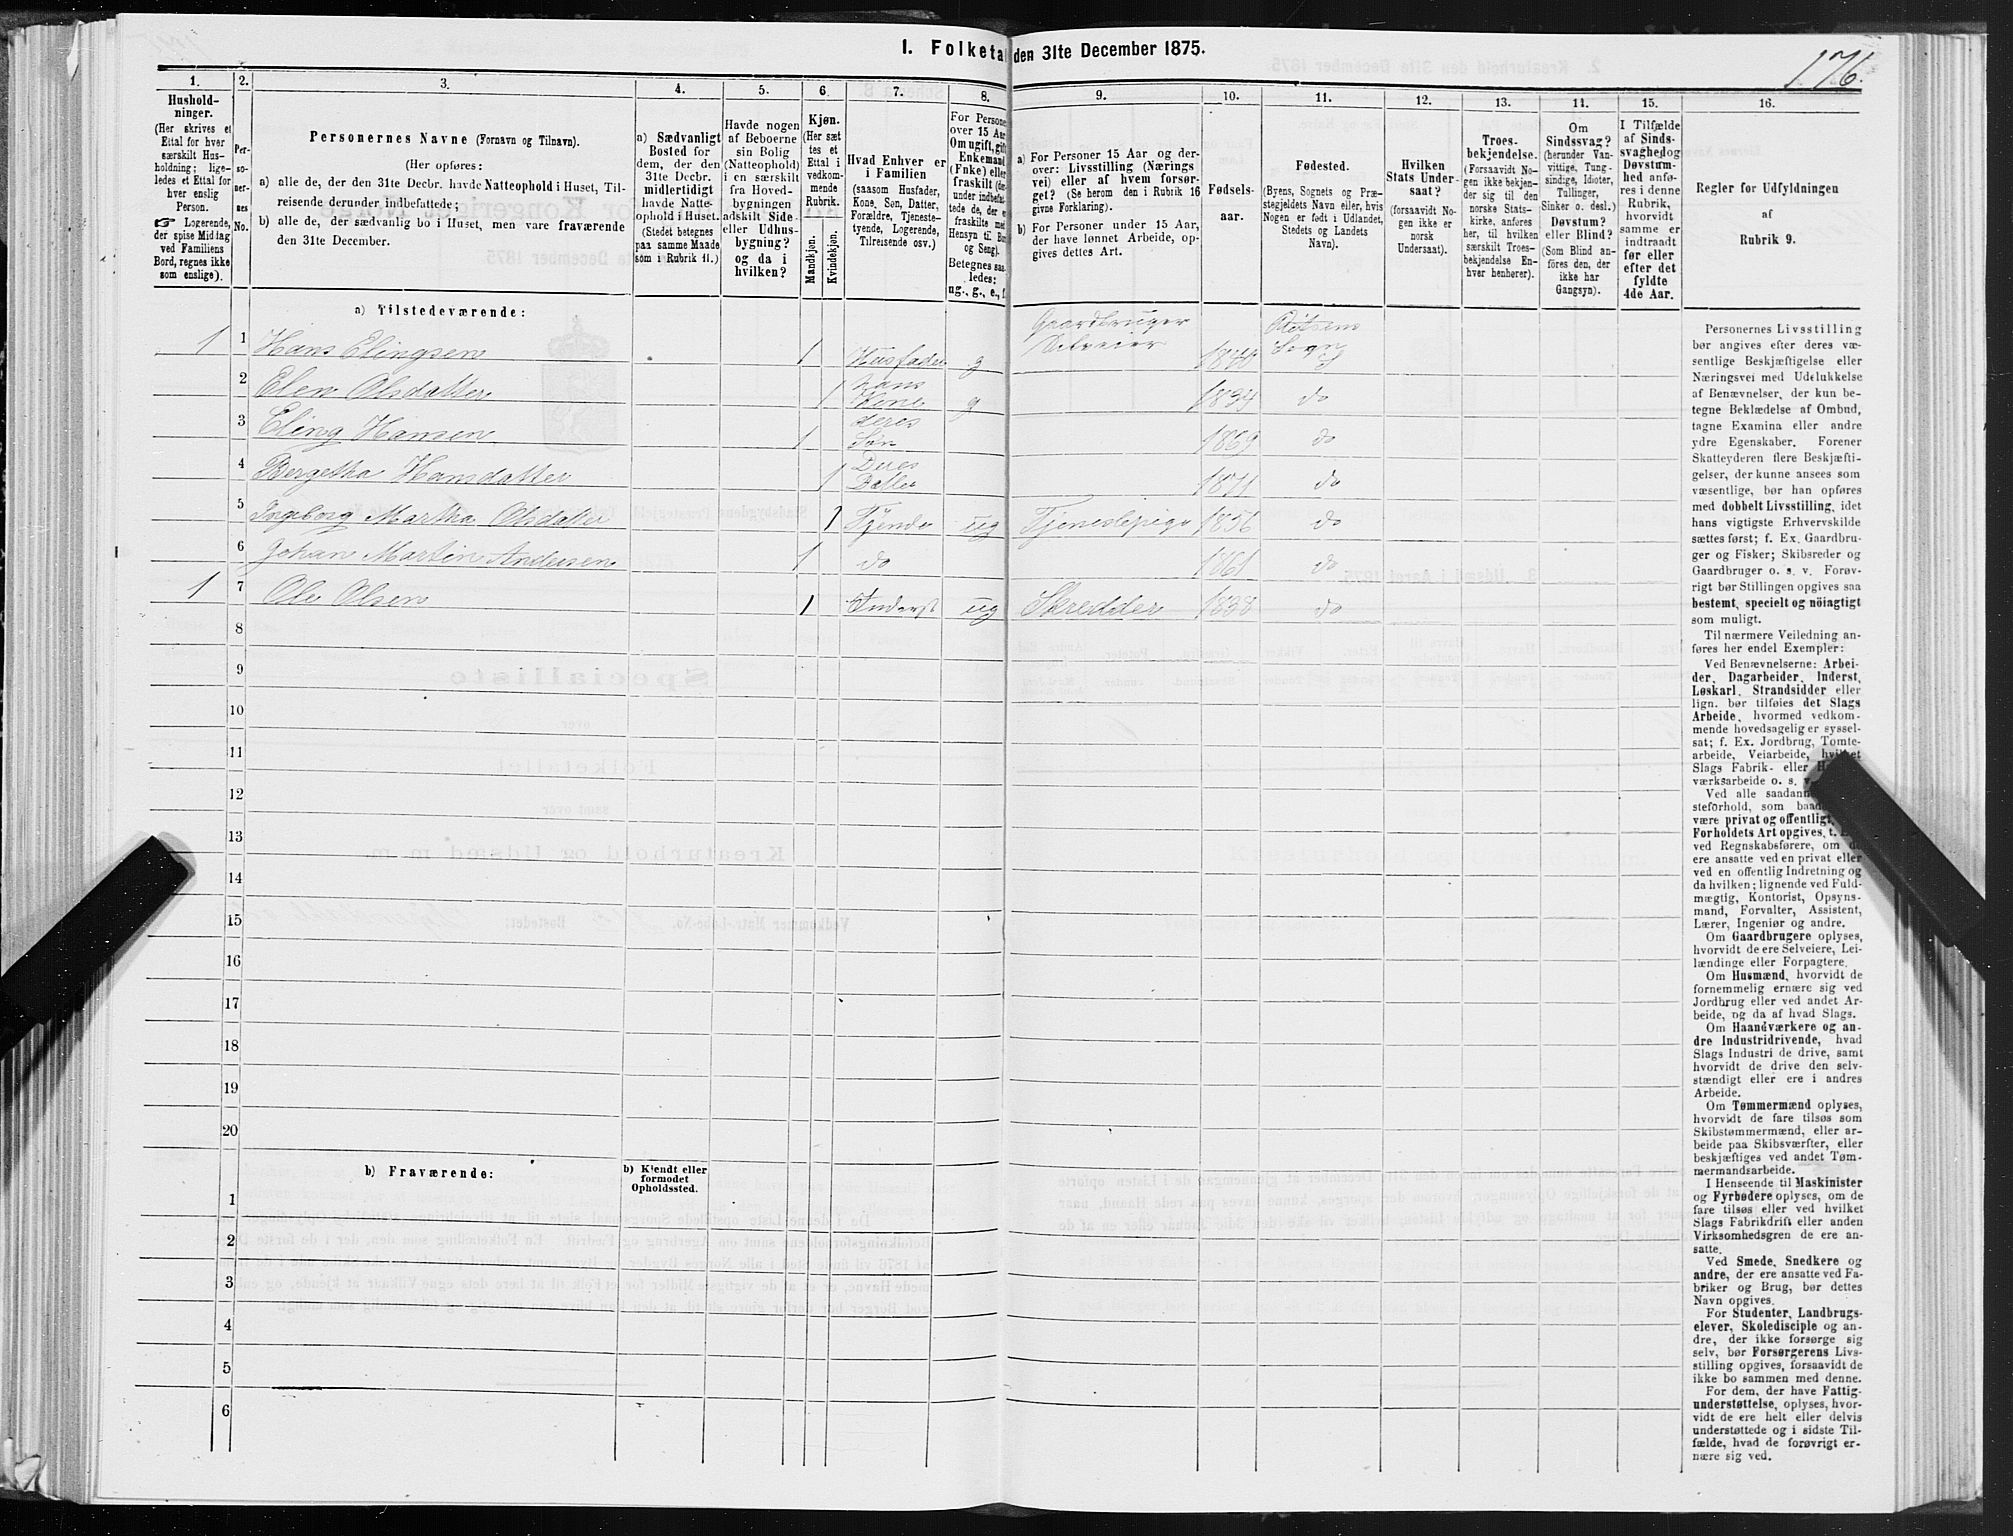 I. Folketal den 31te December 1875.
176.
1. 2. 3. 4. 5. 6. 7. 8. 9. 10. 11. 12. 13. 14. 15. 16.
Hushold-
ninger.
(Her skrives et
Ettal for hver
særskilt Hus-
holdning; lige-
ledes et Ettal for
hver enslig
Person.
☞ Logerende,
der spise Middag
ved Familiens
Bord, regnes ikke
som enslige).
Per-
so-
ner-
nes
No.
Personernes Navne (Fornavn og Tilnavn).
(Her opføres:
a) alle de, der den 31te Decbr. havde Natteophold i Huset, Til-
reisende derunder indbefattede;
b) alle de, der sædvanlig bo i Huset, men vare fraværende
den 31te December.
a) Sædvanligt
Bosted for
dem, der den
31te Decbr.
midlertidigt
havde Natte-
ophold i Huset.
(Stedet betegnes
paa samme Maade
som i Rubrik 11.)
Havde nogen
af Beboerne
sin Bolig
(Natteophold)
i en særskilt
fra Hoved-
bygningen
adskilt Side-
eller Udhus-
bygning?
og da i
hvilken?
Kjøn.
(Her sæt
tes et
Ettal i
vedkom-
mende
Rubrik.
Mandkjøn.
Kvindekjøn.
Hvad Enhver er
i Familien
(saasom Husfader,
Kone, Søn, Datter,
Forældre, Tjeneste-
tyende, Logerende,
Tilreisende osv.)
For Persone
over 15 Aar
Om ugift, gift
Enkemand
(Enke) eller
fraskilt (der-
under indbefat-
tede de, der e
fraskilte med
Hensyn til Bo
og Seng).
Betegnes saa-
ledes:
ug., g., e., f.
a) For Personer 15 Aar og der-
over: Livsstilling (Nærings
vei) eller af hvem forsør-
get? (Se herom den i Rubrik 16
givne Forklaring).
b) For Personer under 15 Aar,
der have lønnet Arbeide, op-
gives dettes Art.
Fødsels-
aar.
Fødested.
(Byens, Sognets og Præ-
stegjeldets Navn eller, hvis
Nogen er født i Udlandet,
Stedets og Landets
Navn).
Hvilken
Stats Under-
saat?
(forsaavidt No-
gen ikke er
norsk
Undersaat).
Troes-
bekjendelse.
(Forsaavidt No-
gen ikke bekjen-
der sig til den
norske Stats-
kirke, anføres
her, til hvilken
særskilt Troes-
bekjendelse En-
hver henhører).
Om
Sindssvag?
(herunder Van-
vittige, Tung-
sindige, Idioter,
Tullinger,
Sinker o. desl.)
Døvstum?
eller Blind?
(Som Blind an-
føres den, der
ikke har
Gangsyn).
I Tilfælde
af Sinds-
svaghed og
Døvstum-
hed anfø-
res i denne
Rubrik,
hvorvidt
samme er
indtraadt
før eller
efter det
fyldte
4de Aar.
Regler for Udfyldningen
af
Rubrik 9.
a) Tilstedeværende:
1 1 Hans Elingsen 1 Husfader g Gaardbruger Selveier Sogn
2 Elen Olsdatter 1 hans Kone g 1834 do
3 Eling Hansen 1 deres Søn 1869 do
4 Bergetha Hansdatter 1 Deres 1871 do
5 Ingeborg Martha Olsdatter 1 Tjende ug Tjenestepige 1856 do
6 Johan Martin Andersen 1 do 1861 do
1 7 Ole Olsen 1 Inderst ug Skredder 1838 do
8
9
10
11
12
13
14
15
16
17
18
19
20
b) Fraværende:
b) Kjendt eller
formodet
Opholdssted.
1
2
3
4
5
6
Personernes Livsstilling
bør angives efter deres væ-
sentlige Beskjæftigelse eller
Næringsvei med Udelukkelse
af Benævnelser, der kun be-
tegne Beklædelse af Ombud,
tagne Examina eller andre
ydre Egenskaber. Forener
Skatteyderen flere Beskjæfti-
gelser, der kunne ansees som
væsentlige, bør han opføres
med dobbelt Livsstilling, idet
hans vigtigste Erhvervskilde
sættes først; f. Ex. Gaardbru-
ger og Fisker; Skibsreder og
Gaardbruger o. s. v. Forøv-
rigt bør Stillingen opgives saa
bestemt, specielt og nöiagtigt
som muligt.
Til nærmere Veiledning an-
føres her endel Exempler:
Ved Benævnelserne: Arbei-
der, Dagarbeider, Inderst,
Løskarl, Strandsidder eller
lign. bør tilføies det Slags
Arbeide, hvormed vedkom-
mende hovedsagelig er syssel-
sat; f. Ex. Jordbrug, Tomte-
arbeide, Veiarbeide, hvilket
Slags Fabrik- eller
værksarbeide o. s.
Ved alle saadan
steforhold, som
være privat og offentligt,
Forholdets Art opgives, t.
ved Regnskabsførere, om
ere ansatte ved en privat eller
ved en offentlig Indretning og
da hvilken; lignende ved Fuld-
mægtig, Kontorist, Opsyns-
mand, Forvalter, Assistent,
Lærer, Ingeniør og andre.
Om Gaardbrugere oplyses,
hvorvidt de ere Selveiere, Lei-
lændinge eller Forpagtere.
Om Husmænd, hvorvidt de
fornemmelig ernære sig ved
Jordbrug eller ved andet Ar-
beide, og da af hvad Slags.
Om Haandværkere og an-
dre Industridrivende, hvad
Slags Industri de drive, samt
hvorvidt de drive den selv-
stændigt eller ere i andres
Arbeide.
Om Tømmermænd oplyses,
hvorvidt de fare tilsøs som
Skibstømmermænd, eller ar-
beide paa Skibsværfter, eller
beskjæftiges ved andet Tøm-
mermandsarbeide.
I Henseende til Maskinister
og Fyrbødere oplyses, om de
fare tilsøs eller ved hvilket
Slags Fabrikdrift eller anden
Virksomhedsgren de ere an-
satte.
Ved Smede, Snedkere og
andre, der ere ansatte ved Fa-
briker og Brug, bør dettes
Navn opgives.
For Studenter, Landbrugs-
elever, Skoledisciple og an-
dre, der ikke forsørge sig
selv, bør Forsørgerens Livs-
stilling opgives, forsaavidt de
ikke bo sammen med denne.
For dem, der have Fattig-
understøttelse, oplyses, hvor-
vidt de ere helt eller delvis
understøttede og i sidste Til-
fælde, hvad de forøvrigt er-
nære sig ved.